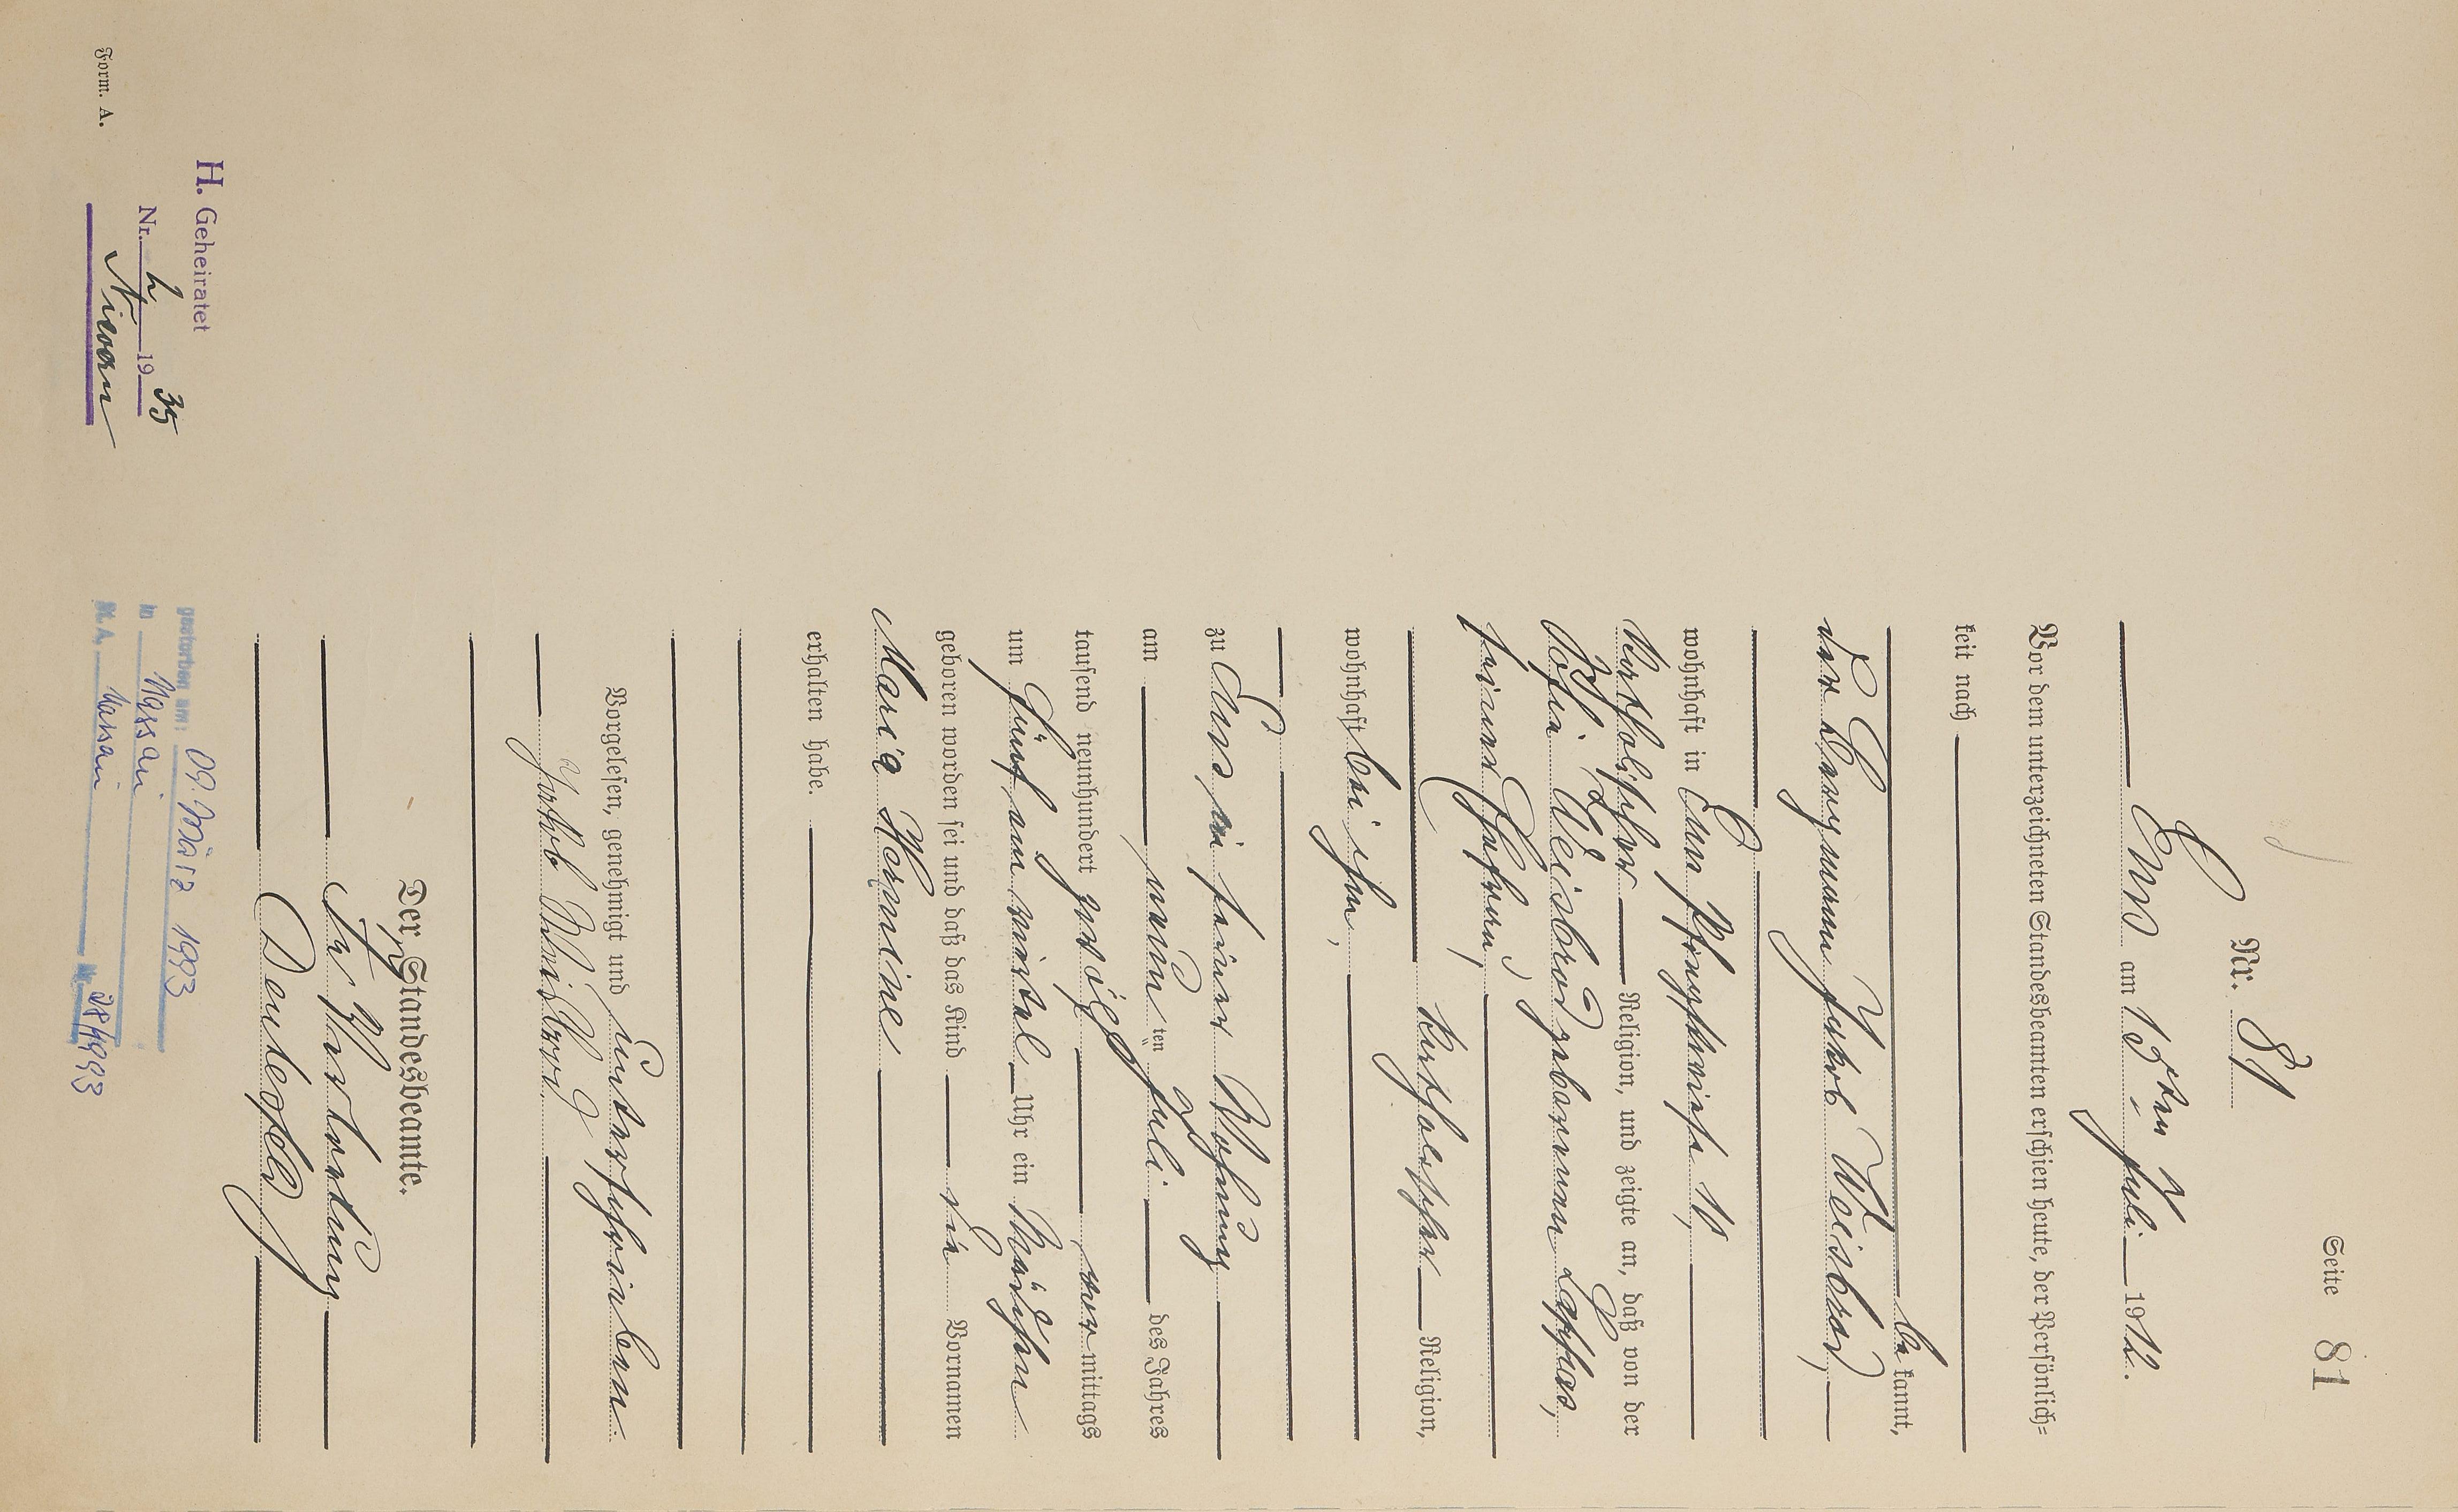 Seite 81
Nr. 81
Ems am 15ten Juli 1912.
Vor dem unterzeichneten Standesbeamten erschien heute, der Persönlich=
keit nach
be kannt,
der Bergmann Jakob Weisbrod,
wohnhaft in Ems, Pfingstwiese 10,
katholischer Religion, und zeigte an, daß von der
Sofia Weisbrod geborenen
seiner Ehefrau,
katholischer Religion,
wohnhaft bei ihm,
zu Ems in seiner Wohnung
am neun ten Juli des Jahres
tausend neunhundert zwölf vor mittags
um fünf ein viertel Uhr ein Mädchen
geboren worden sei und daß das Kind die Vornamen
Maria Hermine
erhalten habe.
Vorgelesen, genehmigt und unterschrieben.
Jakob Weisbrod.
Der Standesbeamte.
In Vertretung
H. Geheiratet
Nr. 2 19 35
Nievern
gestorben am: 09. März 1993
in Nassau
St. A. Nassau Nr. 28/1993
Form. A.